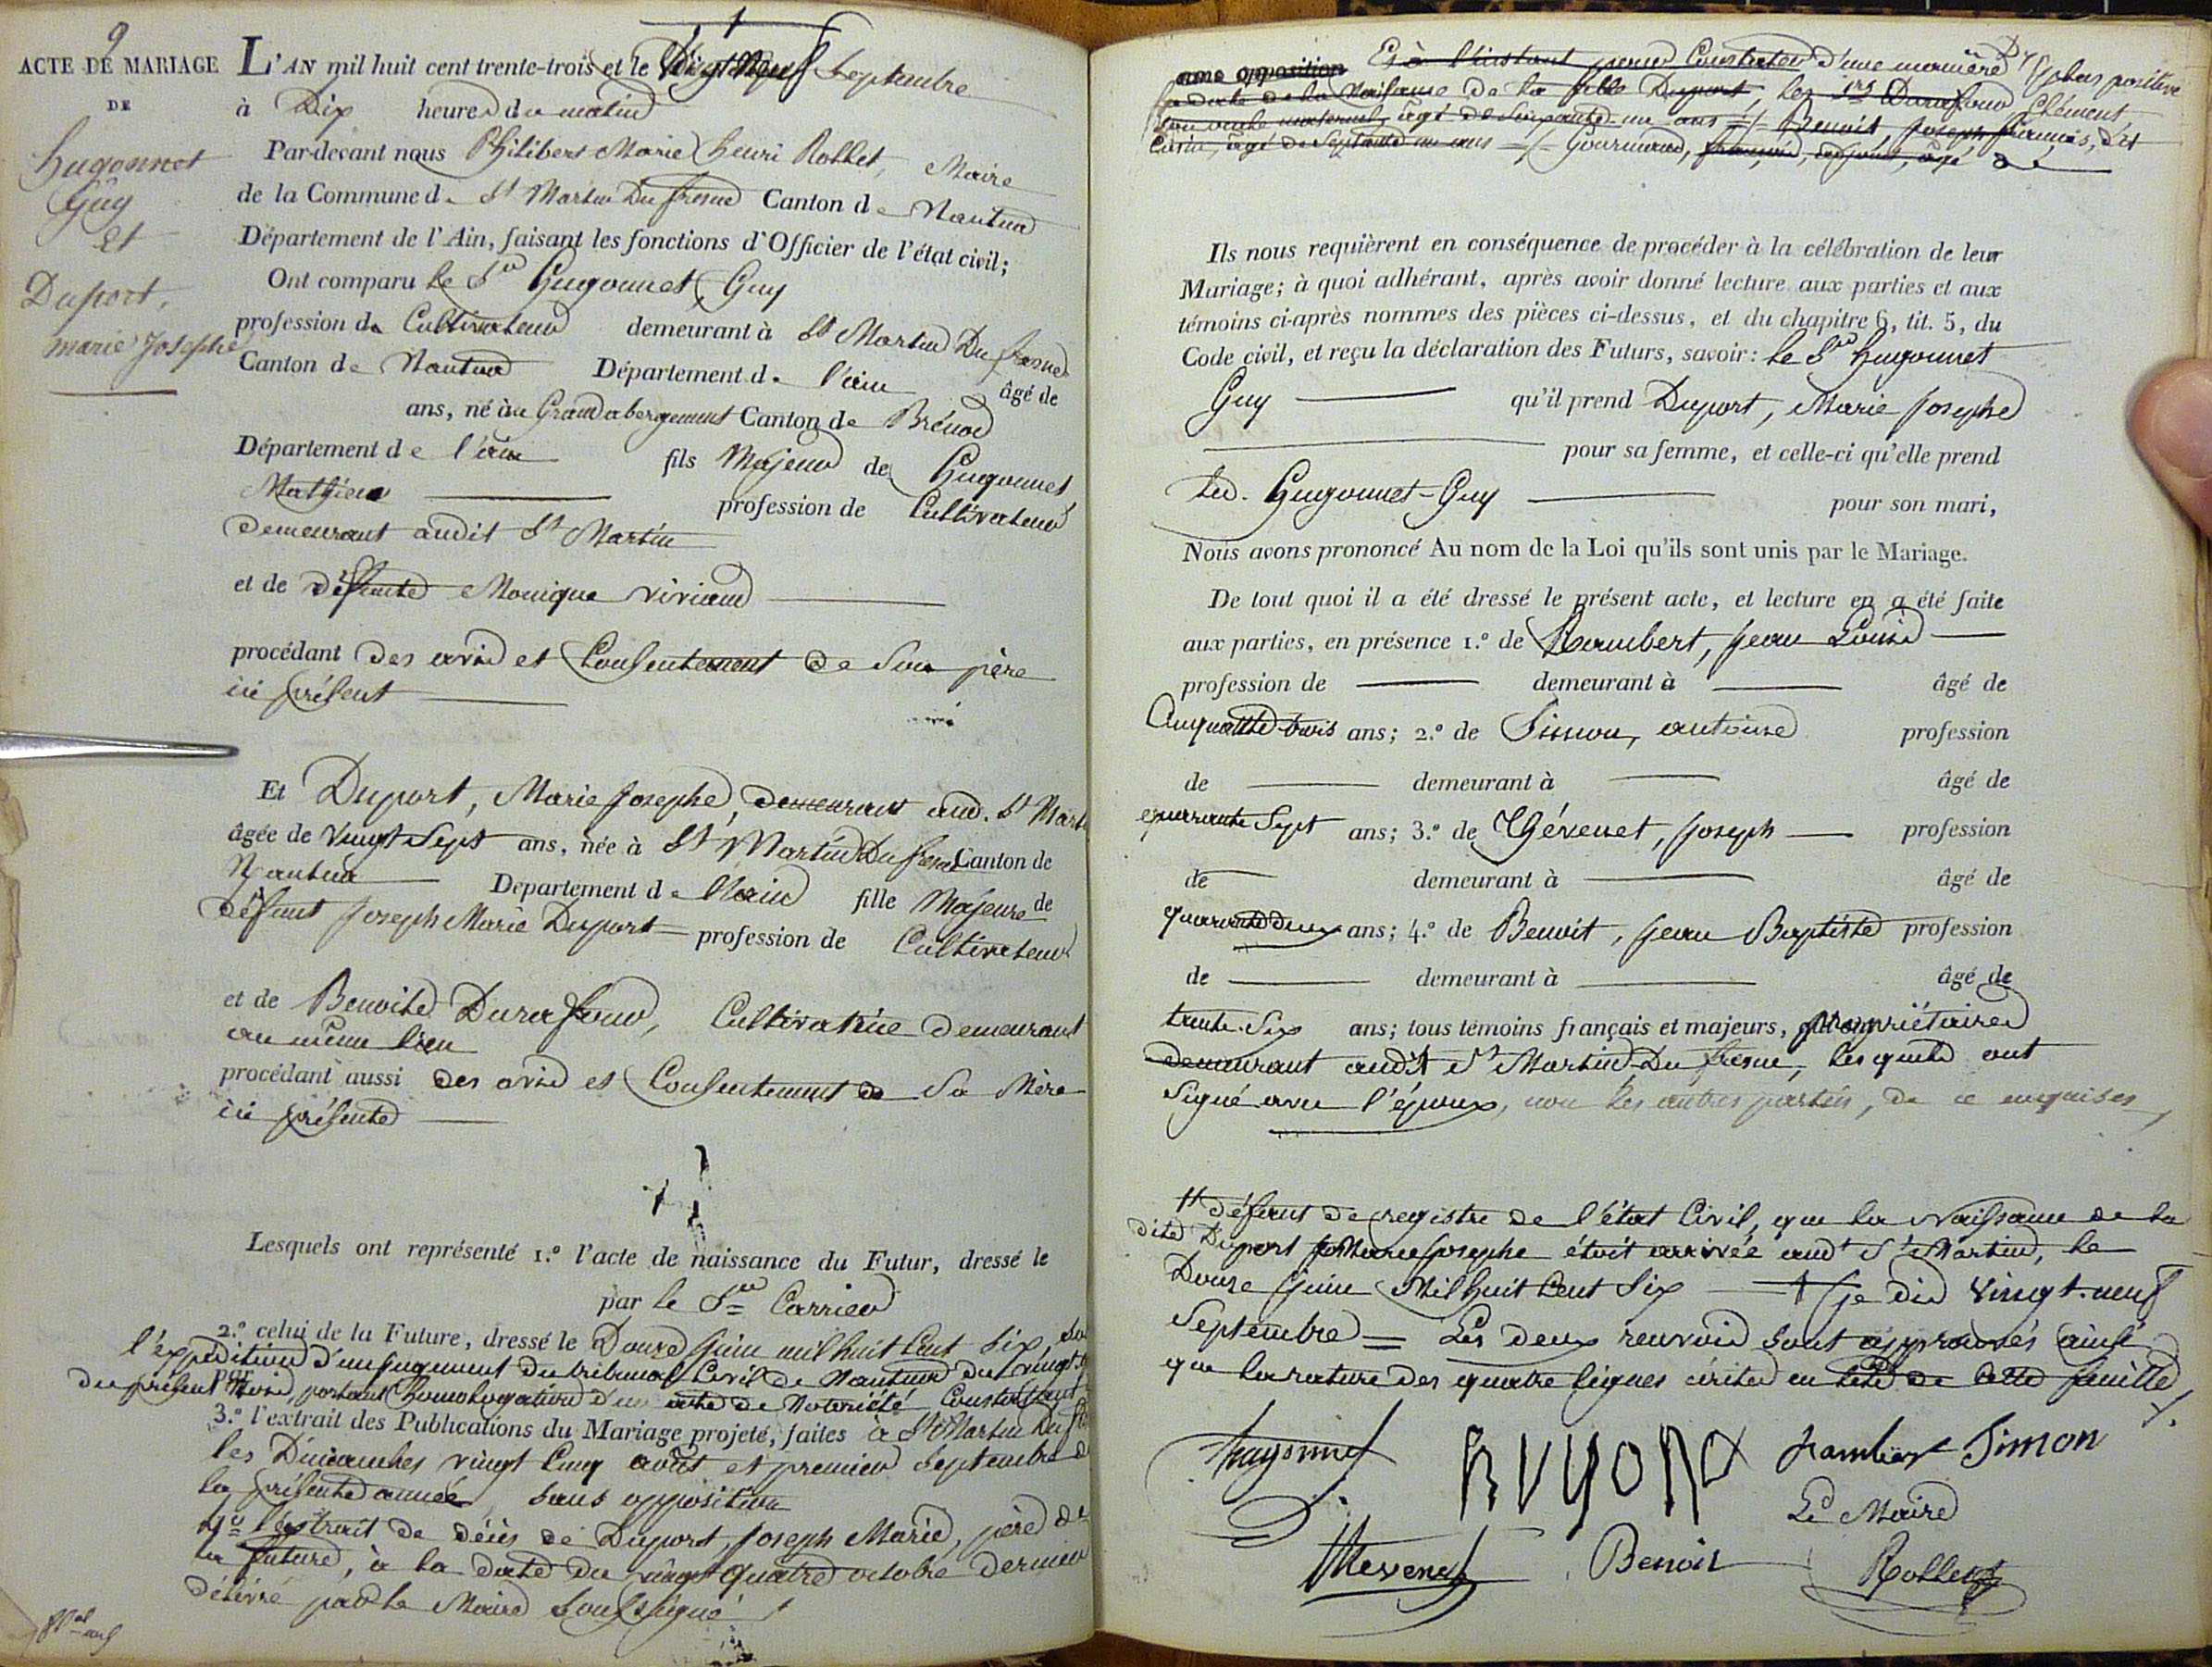 9
ACTE DE MARIAGE
DE
hugonnet
Guy
Et
Duport,
marie Josephe
L'AN mil huit cent trente-trois et le Vingt Neuf Septembre
à Dix heures du matin
Par-devant nous Philibert Marie Henri Rollet, Maire
de la Commune de St Martin Du fresne Canton de Nantua
Département de l'Ain, faisant les fonctions d'Officier de l'état civil;
Ont comparu le Sr Hugonnet Guy
profession de Cultivateur demeurant à St Martin Du fresne
Canton de Nantua Département de l'ain âgé de
ans, né au Grand abergement Canton de Brénod
Département de l'ain fils Majeur de Hugonnet
Mathieu profession de Cultivateur
demeurant audit St Martin
et de défunte Monique Viviand
procédant des avis et Consentement de Son père
ici présent
Et Duport, Marie Josephe, demeurant aud. St Mart
âgée de Vingt Sept ans, née à St Martin Du fresne Canton de
Nantua Département de l'ain fille Majeure de
défunt Joseph Marie Duport profession de Cultivateur
et de Benoite Durafour, Cultivatrice demeurant
au même lieu
procédant aussi des avis et Consentement de Sa Mère
ici présente
Lesquels ont représenté 1.º l'acte de naissance du Futur, dressé le
par le Sr Carrier
2.º celui de la Future, dressé le Douze Juin mil huit Cent Six
l'expédition d'un Jugement du tribunal Civil de Nantua du vingt
du présent Mois, portant homologation d'un acte de Notoriété Constatant
3.º l'extrait des Publications du Mariage projeté, faites à St Martin Du
les Dimanches vingt Cinq août et premier Septembre de
la présente année, sans opposition
4º l'extrait de décès de Duport, Joseph Marie, père de
la future, à la date du vingt quatre octobre dernier
délivré par le Maire Soussigné
Et à l'instant pour Constater d'une manière plus positive
la date de la Naissance de la fille Duport, les Srs Durafour Clément,
son oncle maternel, âgé de Soixante un ans Benoit, Joseph François, dit
âgé de Septante un ans Gourmand, âgé de
Ils nous requièrent en conséquence de procéder à la célébration de leur
Mariage; à quoi adhérant, après avoir donné lecture aux parties et aux
témoins ci-après nommes des pièces ci-dessus, et du chapitre 6, tit. 5, du
Code civil, et reçu la déclaration des Futurs, savoir: le Sr hugonnet
Guy qu'il prend Duport, Marie Josephe
pour sa femme, et celle-ci qu'elle prend
led. Hugonnet Guy pour son mari,
Nous avons prononcé Au nom de la Loi qu'ils sont unis par le Mariage.
De tout quoi il a été dressé le présent acte, et lecture en a été faite
aux parties, en présence 1.º de Rambert, Jean Louis
profession de demeurant à âgé de
Cinquante trois ans; 2.º de Simon, antoine profession
de demeurant à âgé de
quarante Sept ans; 3.º de Thévenet, Joseph profession
de demeurant à âgé de
quarante deux ans; 4.º de Benoit, Jean Baptiste profession
de demeurant à âgé de
trente Six ans; tous témoins français et majeurs, propriétaires
demeurant audit St Martin Du fresne, lesquels ont
Signé avec l'époux, non les autres parties, de ce enquises
défaut de registre de l'état Civil, que la Naissance de la
dite Duport Marie Josephe étoit arrivée audt St Martin, le
Douze Juin Mil huit Cent Six je dis vingt-neuf
Septembre = Les deux renvois sont approuvés ainsi
que la rature des quatre lignes écrites en tête de cette feuille
hugonnet hugond Rambert Simon
Le Maire
Thevenet Benoit Rollet